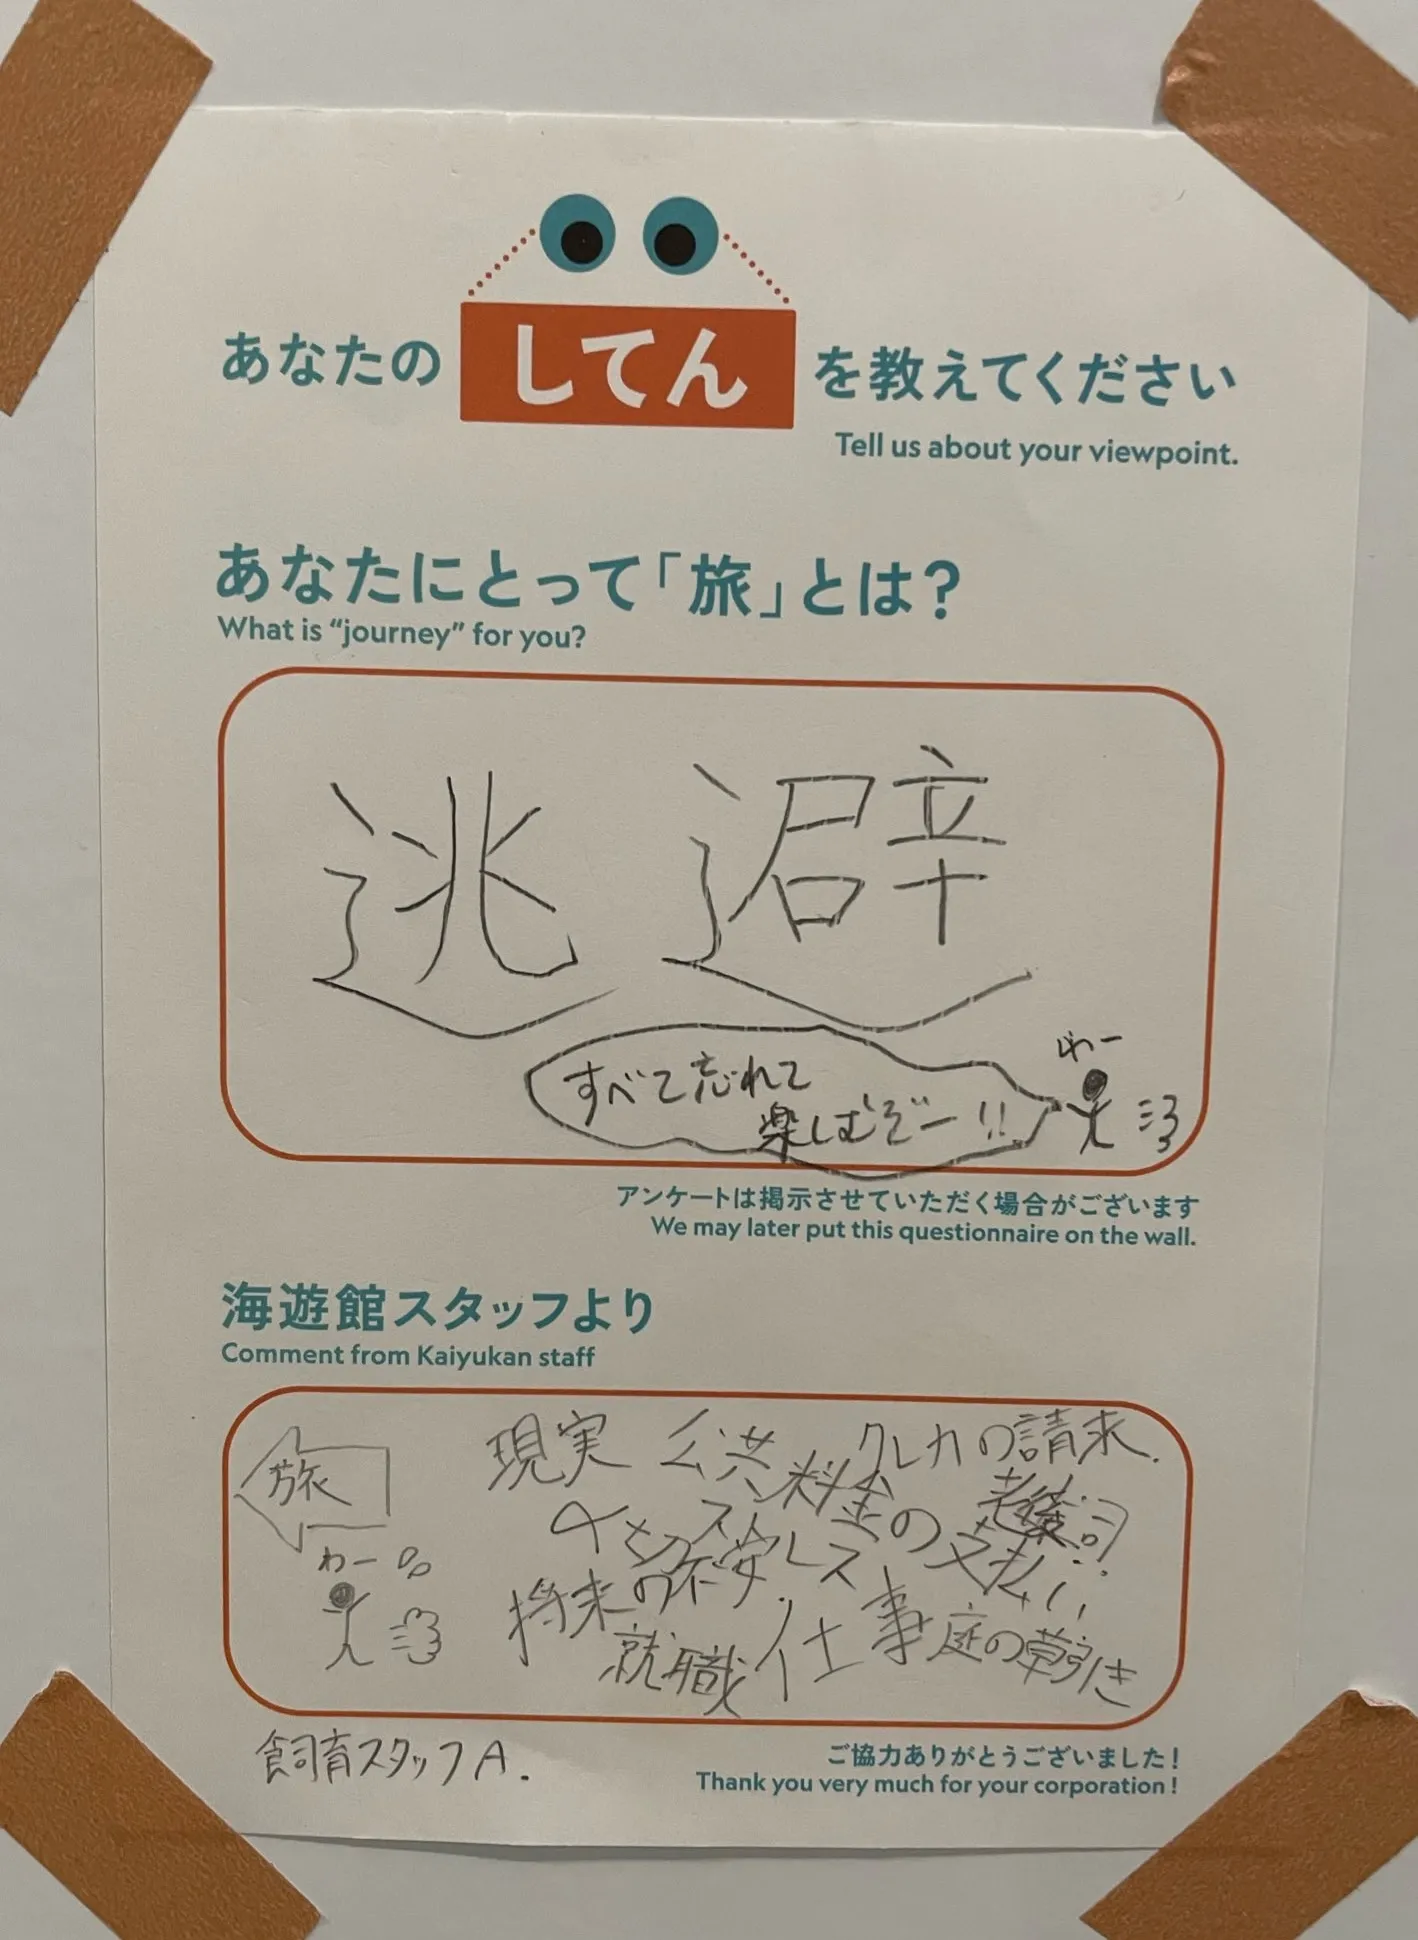 あなたの してん を教えてください
Tell us about your viewpoint.
あなたにとって「旅」とは?
What is “journey” for you?
逃避
わー
すべて忘れて
楽しむぞー!!
アンケートは掲示させていただく場合がございます
We may later put this questionnaire on the wall.
海遊館スタッフより
Comment from Kaiyukan staff
旅
わー
現実
公共料金の支払い
クレカの請求
老後
〆切
ストレス
将来の不安
就職
仕事
庭の草引き
飼育スタッフA.
ご協力ありがとうございました!
Thank you very much for your corporation!